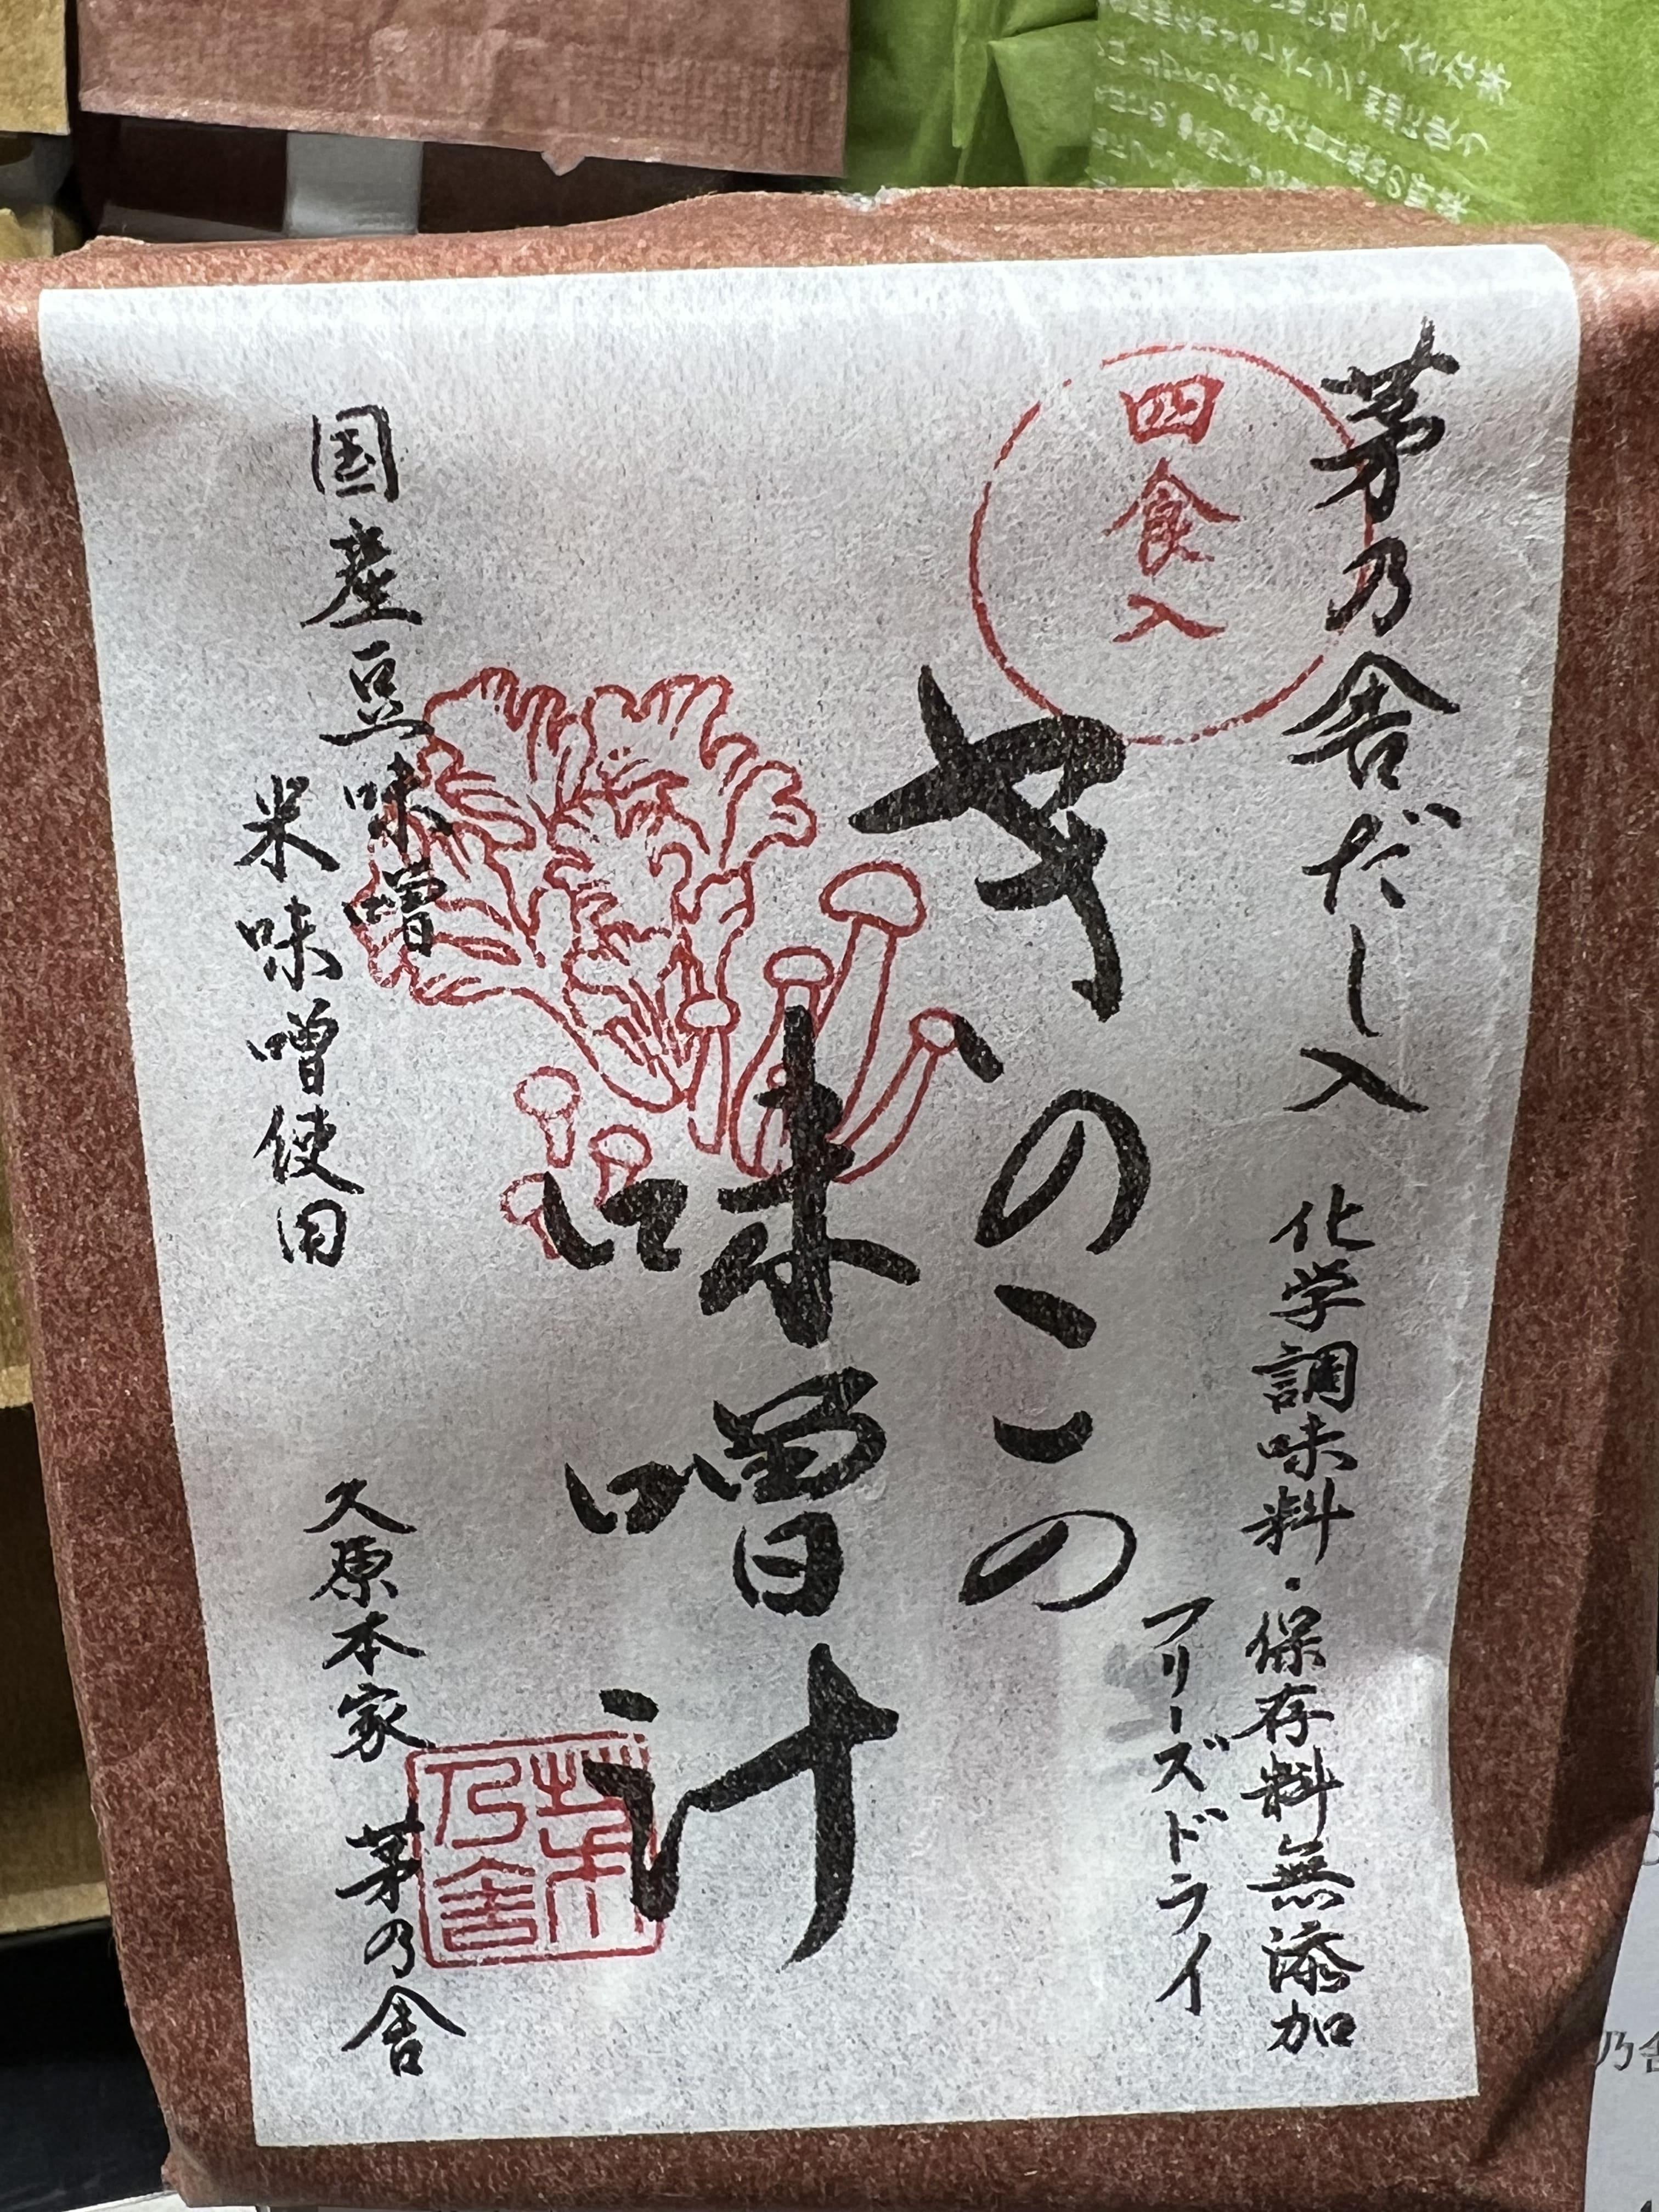 茅乃舎だし入
化学調味料・保存料無添加
フリーズドライ
四食入
きのこの
味噌汁
国産豆味噌
米味噌使用
久原本家 茅乃舎
茅乃舎
乃舎